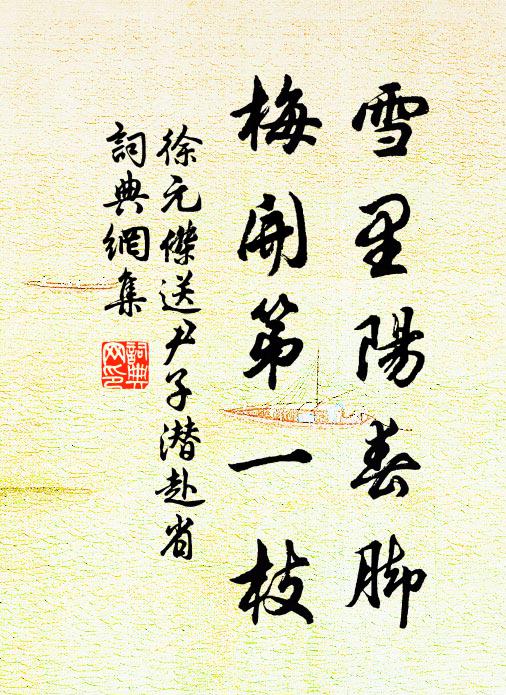 雪里陽春脚
梅開第一枝
徐元傑送尹子潜赴省
詞典網集
詞典
网印